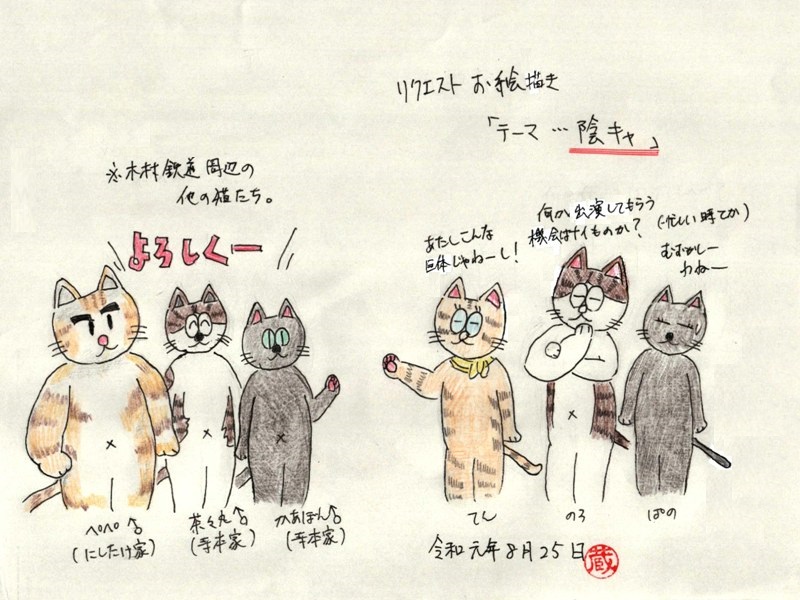 リクエスト お絵描き
「テーマ … 陰キャ」
※木村鉄道周辺の
他の猫たち。
よろしくー
あたしこんな
巨体じゃねーし!
何か出演してもらう
機会はナイものか?
(忙しい時てか)
むずかしー
わねー
ペペペ♂
(にしたけ家)
茶々丸♂
(寺本家)
かあほん♂
(寺本家)
てん
のろ
ぱの
令和元年8月25日
蔵